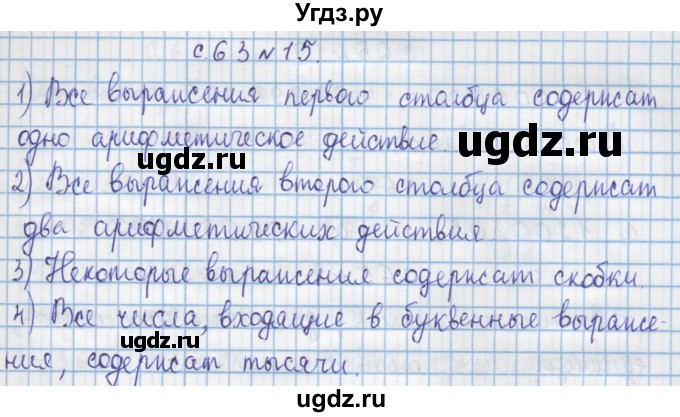 Угдз.ру
с.63 №15.
1) Все выражения первого столбца содержат
ugdz.ru
одно арифметическое действие.
ugdz.ru
2) Все выражения второго столбца содержат
ugdz.ru
ugdz.ru
два арифметических действия.
3) Некоторые выражения содержат скобки.
4) Все числа, входящие в буквенные выраже-
ugdz.ru
ния, содержат тысячи.
ugdz.ru